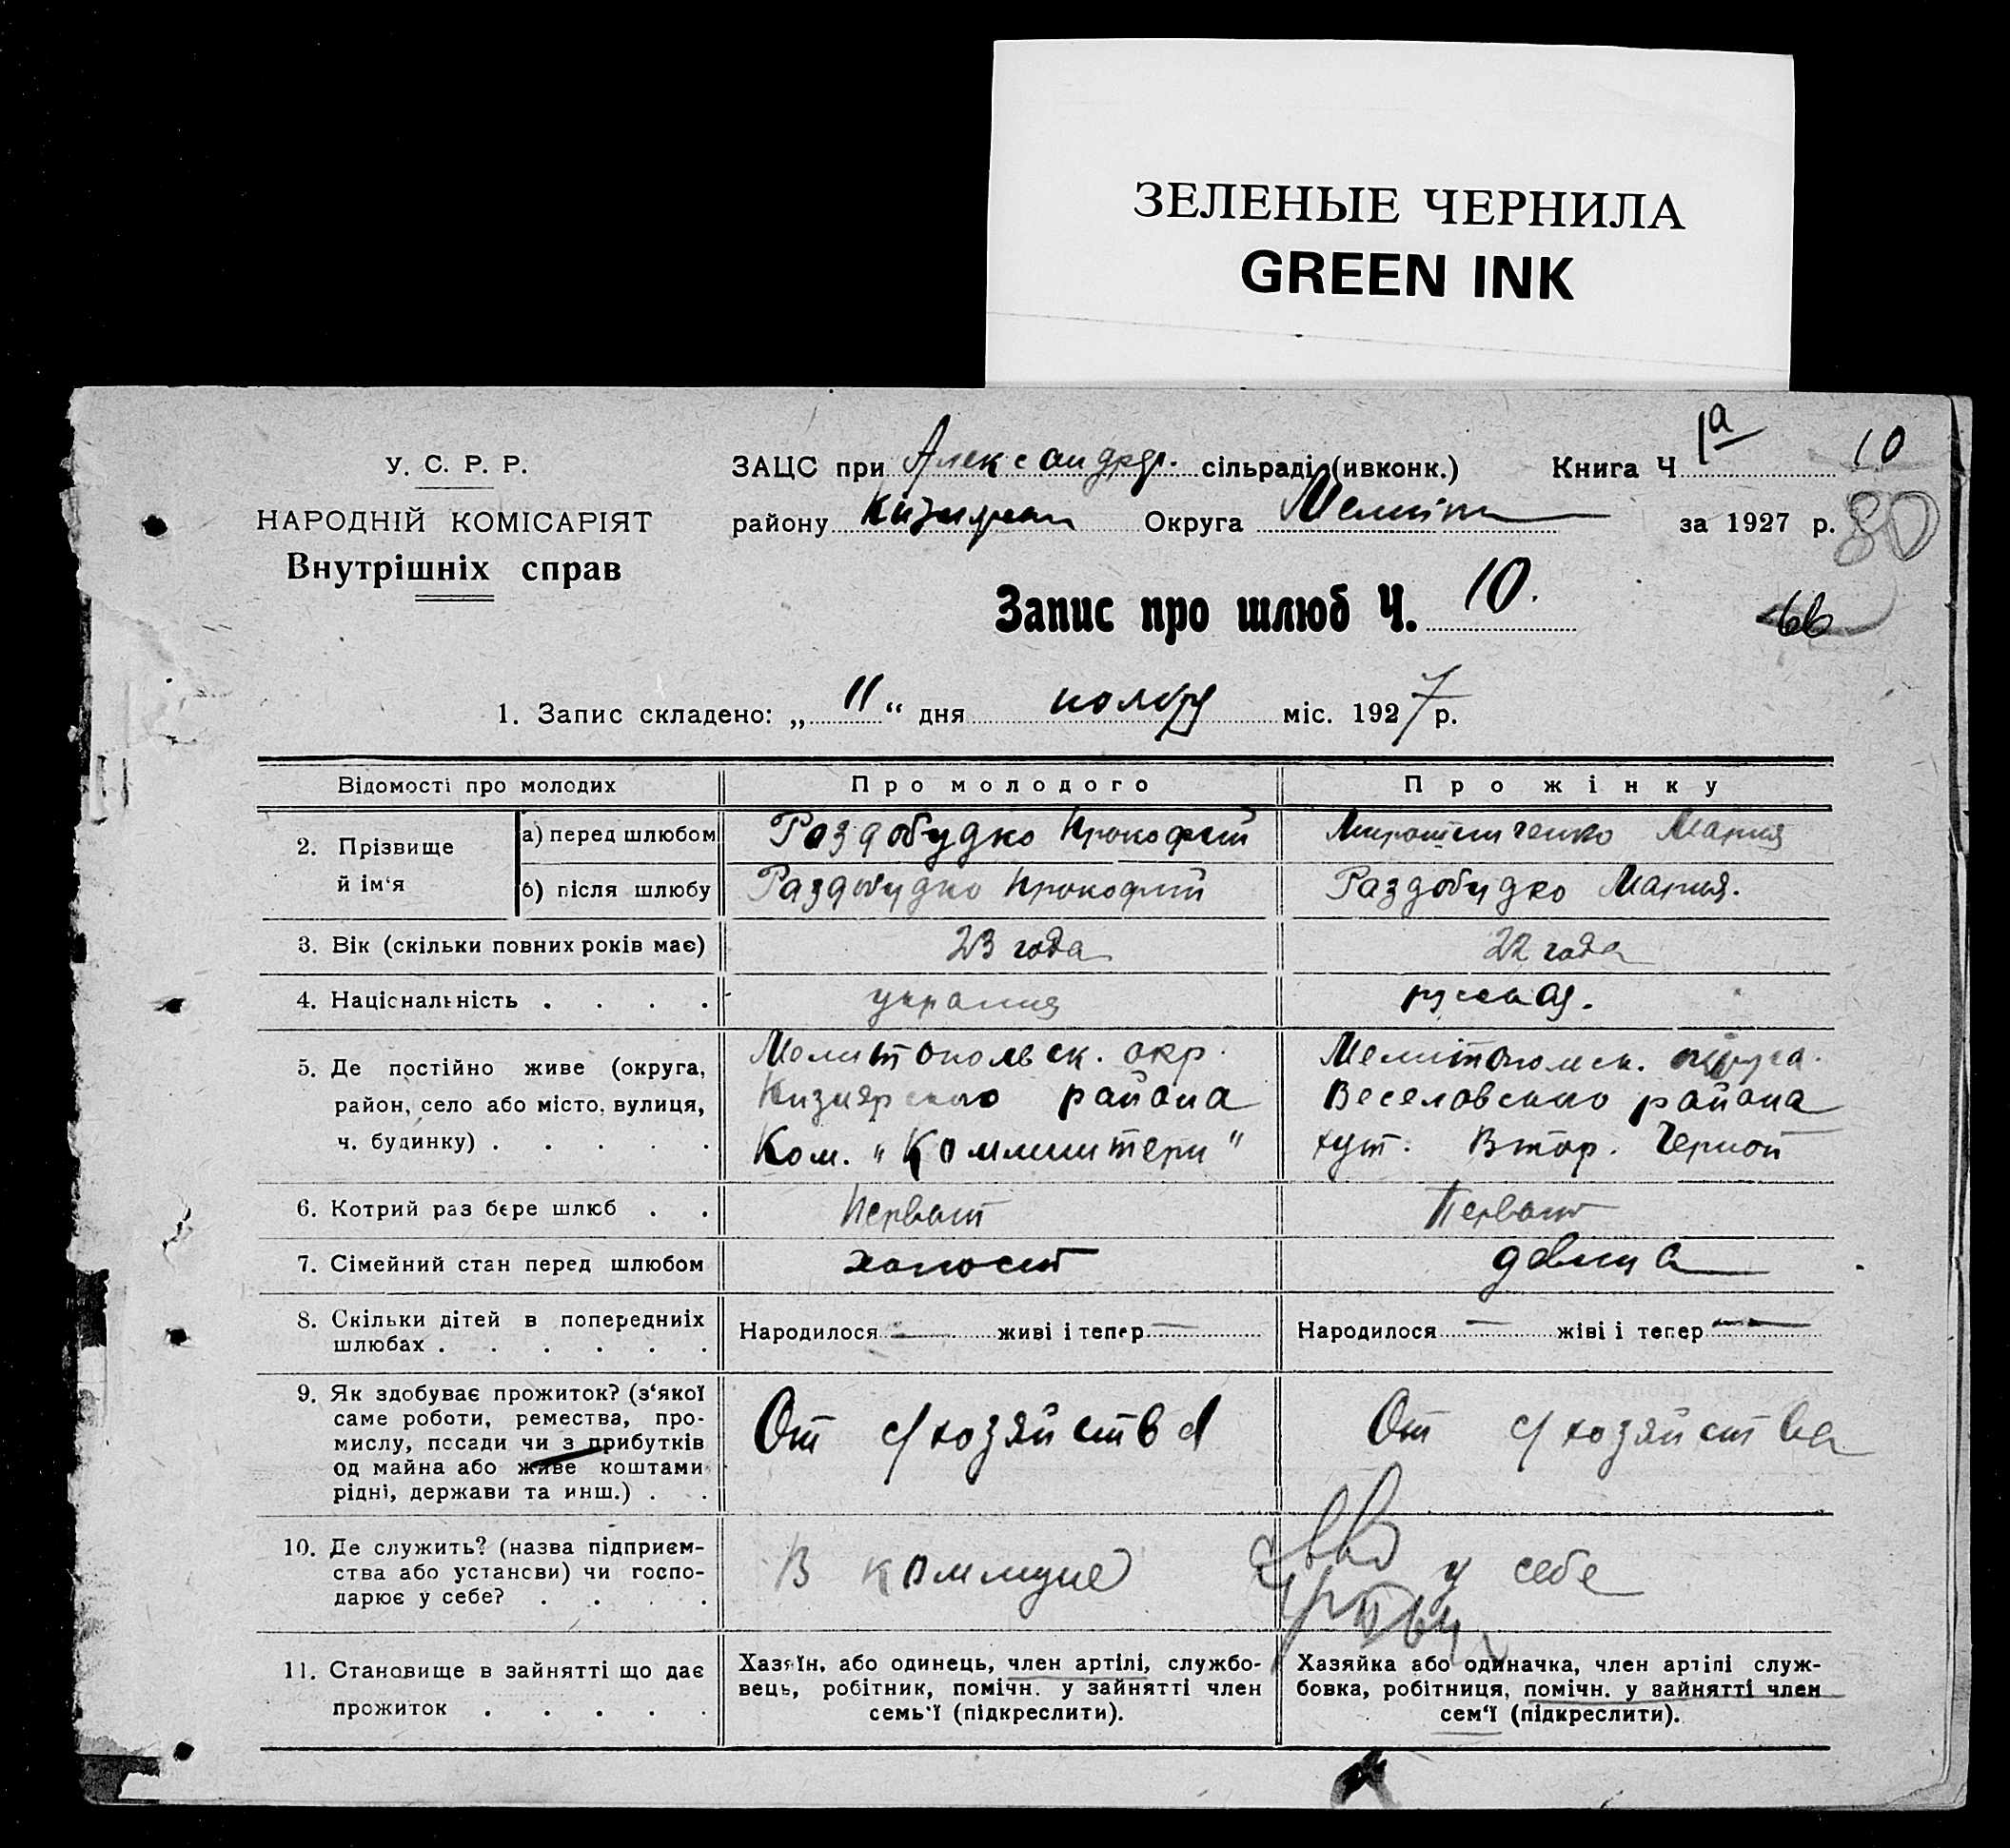 ЗЕЛЕНЫЕ ЧЕРНИЛА
GREEN INK
У. С. Р. Р.
НАРОДНІЙ КОМІСАРІЯТ
Внутрішніх справ
ЗАЦС при Александр. сільраді (ивконк.) Книга Ч 1а 10
району Округа Меліт за 1927 р. 80
Запис про шлюб Ч. 10.
66
1. Запис складено: „ 11 “ дня ноября міс. 1927 р.
Відомості про молодих Про молодого Про жінку
2. Прізвище й ім‘я
а) перед шлюбом Раздобудко Прокофий Мирошниченко Мария
б) після шлюбу Раздобудко Прокофий Раздобудко Мария.
3. Вік (скільки повних років має) 23 года 22 года
4. Національність . . . . русская.
5. Де постійно живе (округа, район, село або місто, вулиця, ч. будинку) . . . . .
Мелитопольск. окр.
Кизиярского района
Ком. "Комминтерн"
Мелитопольск. округа.
Веселовского района
хут. Втор. Черной
6. Котрий раз бере шлюб . . Первый Первый
7. Сімейний стан перед шлюбом холост девица
8. Скільки дітей в попередниіх шлюбах . . . . . .
Народилося — живі і тепер —
Народилося — жіві і тепер —
9. Як здобуває прожиток? (з‘якої
саме роботи, ремества, про-
мислу, посади чи з прибутків
од майна або живе коштами
рідні, держави та инш.) . .
От с/хозяйства
От с/хозяйства
10. Де служить? (назва підприєм-
ства або устансви) чи госпо-
дарює у себе? . . . .
В коммуне
у себе
11. Становище в зайнятті що дає
прожиток . . . . .
Хазяїн, або одинець, член артілі, службо-
вець, робітник, помічн. у зайнятті член
семь‘ї (підкреслити).
Хазяйка або одиначка, член артілі служ-
бовка, робітниця, помічн. у зайнятті член
сем‘ї (підкреслити).